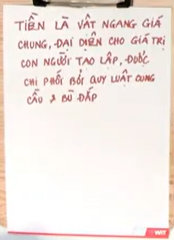 TIỀN LÀ VẬT NGANG GIÁ
CHUNG, ĐẠI DIỆN CHO GIÁ TRỊ
CON NGƯỜI TẠO LẬP, ĐƯỢC
CHI PHỐI BỞI QUY LUẬT CUNG
CẦU & BÙ ĐẮP